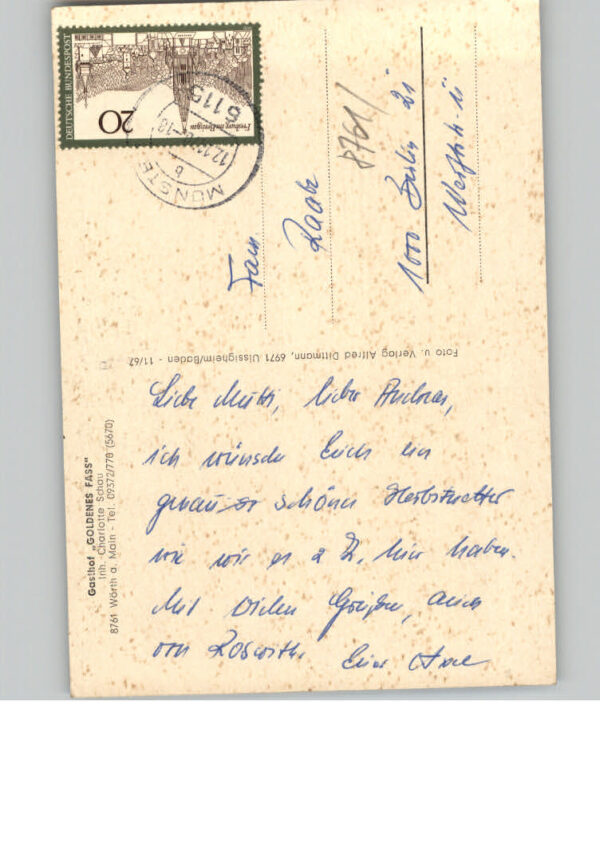 DEUTSCHE BUNDESPOST
20
Freiburg im Breisgau
6115
12.10
-18
b
MÜNSTE
8761/
Fam
Raabe
1000 Berlin 21
Foto u. Verlag Alfred Dittmann, 6971 Uissigheim/Baden - 11/67
Gasthof „GOLDENES FASS"
Inh. Charlotte Schau
8761 Wörth a. Main - Tel. 09372/778 (5670)
Liebe Mutti, lieber Andreas,
ich wünsche Euch ein
genau so schönes Herbstwetter
wie wir es z. Z. hier haben.
Mit vielen Grüßen, auch
von Roswith. Euer Axel